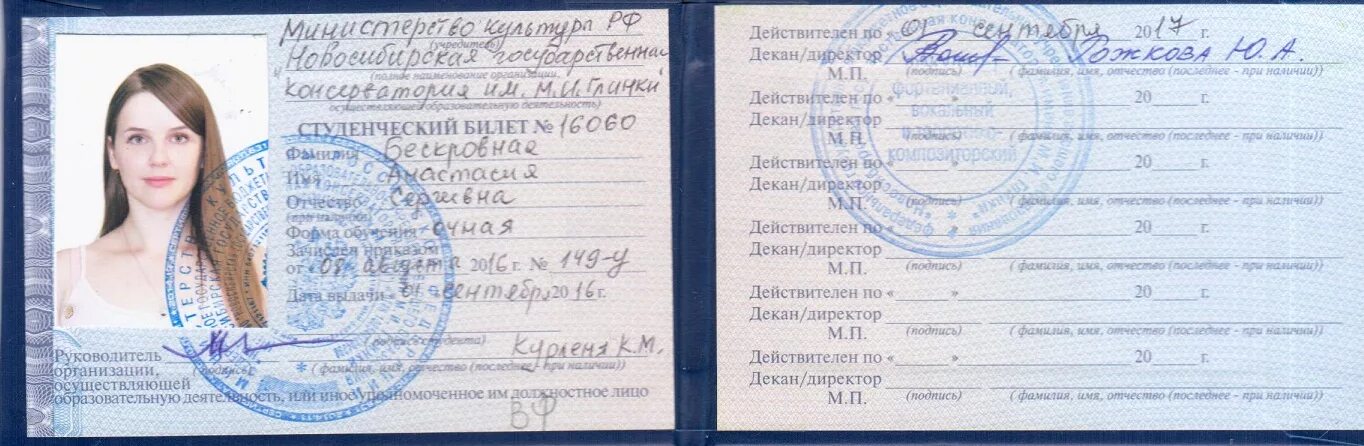 Министерство культуры РФ
(учредитель)
Новосибирская государственная
(полное наименование организации,
консерватория им. М.И. Глинки
осуществляющей образовательную деятельность)
СТУДЕНЧЕСКИЙ БИЛЕТ № 16060
Фамилия Бескровная
Имя Анастасия
Отчество Сергеевна
(при наличии)
Форма обучения очная
Зачислен приказом
от «08» августа 2016 г. № 149-у
Дата выдачи «01» сентября 2016 г.
(подпись студента)
Руководитель Курленя К.М.
организации, (фамилия, имя, отчество (последнее - при наличии))
осуществляющей
образовательную деятельность, или иное уполномоченное им должностное лицо
ВФ
Действителен по «01» сентября 2017 г.
Декан/директор Рожкова Ю.А.
М.П. (подпись) (фамилия, имя, отчество (последнее - при наличии))
Действителен по « » 20 г.
Декан/директор
М.П. (подпись) (фамилия, имя, отчество (последнее - при наличии))
Действителен по « » 20 г.
Декан/директор
М.П. (подпись) (фамилия, имя, отчество (последнее - при наличии))
Действителен по « » 20 г.
Декан/директор
М.П. (подпись) (фамилия, имя, отчество (последнее - при наличии))
Действителен по « » 20 г.
Декан/директор
М.П. (подпись) (фамилия, имя, отчество (последнее - при наличии))
Действителен по « » 20 г.
Декан/директор
М.П. (подпись) (фамилия, имя, отчество (последнее - при наличии))
фортепианный,
вокальный
композиторский